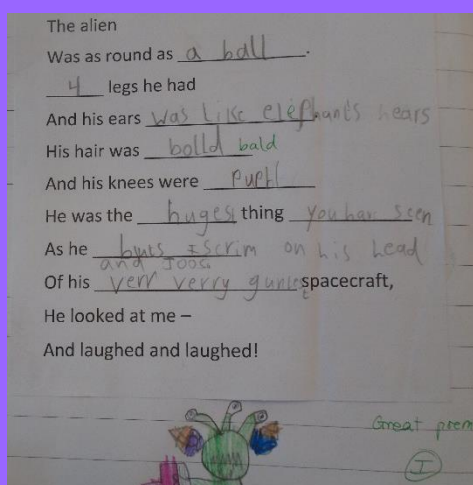 The alien
Was as round as a ball.
4 legs he had
And his ears was like elephants hears
His hair was bolld bald
And his knees were
He was the huges thing you hav seen
As he puts iscrim on his head
and
Of his verr verry spacecraft,
He looked at me –
And laughed and laughed!
Great
I